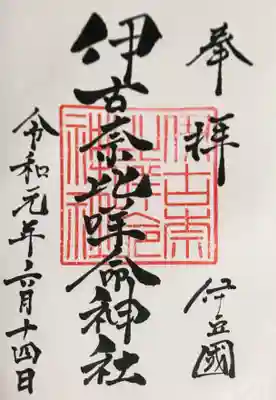 奉拝
伊豆國
伊古奈比咩命神社
令和元年六月十四日
伊古奈
比咩命
神社